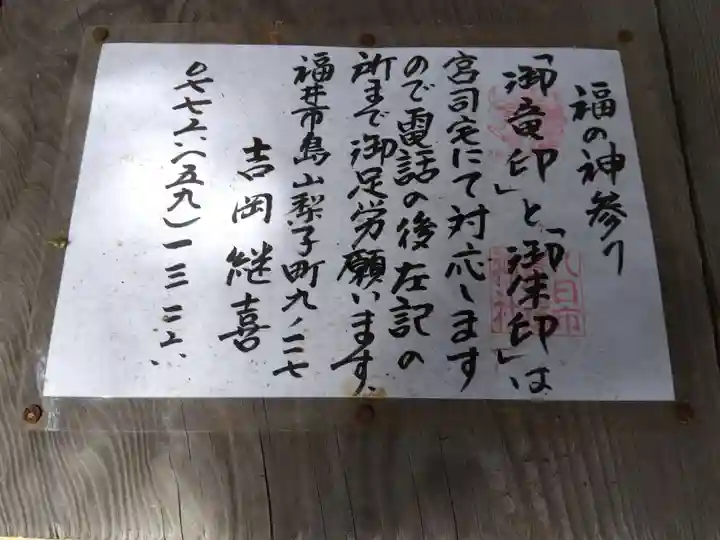 福の神参り
「御竜印」と「御朱印」は
宮司宅にて対応します
ので電話の後左記の
所まで御足労願います、
福井市島山梨子町九ノ二七
吉岡継喜
八日市
神社